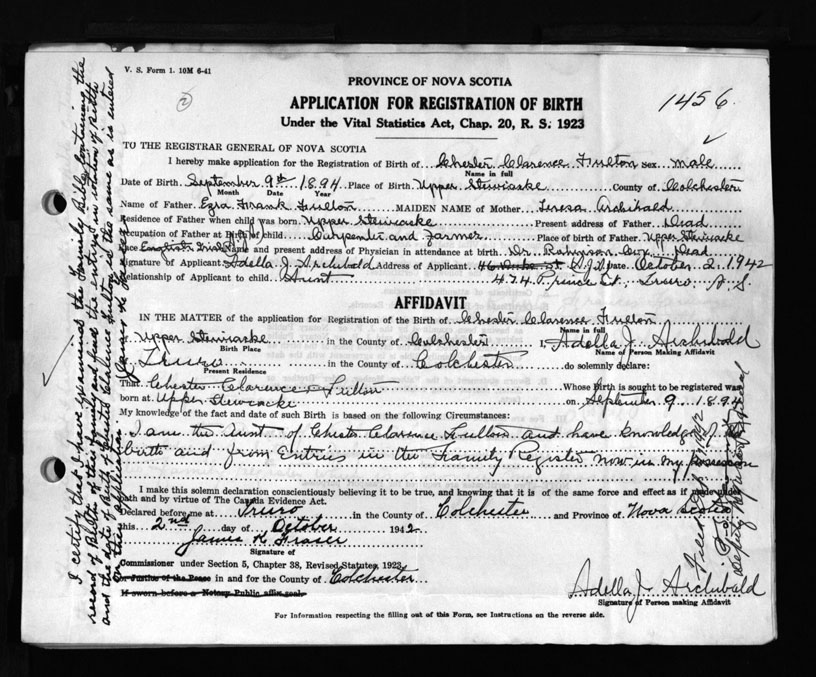 V. S. Form 1. 10M 6-41
PROVINCE OF NOVA SCOTIA
APPLICATION FOR REGISTRATION OF BIRTH
1456.
Under the Vital Statistics Act, Chap. 20, R. S. 1923
TO THE REGISTRAR GENERAL OF NOVA SCOTIA
I hereby make application for the Registration of Birth of Chester Clarence Fulton Sex male
Name in full
Date of Birth September 9th 1894 Place of Birth Upper Stewiacke County of Colchester
Month Date Year
Name of Father Ezra Frank Fulton MAIDEN NAME of Mother Teresa Archibald
Residence of Father when child was born Upper Stewiacke Present address of Father Dead
Occupation of Father at Birth of child Carpenter and Farmer Place of birth of Father Upper Stewiacke
Race English Name and present address of Physician in attendance at birth Dr. Robinson Cox Dead
Signature of Applicant Adella J. Archibald Address of Applicant Date October 2, 1942
Relationship of Applicant to child Aunt 474 Prince St, Truro N. S.
AFFIDAVIT
IN THE MATTER of the application for Registration of the Birth of Chester Clarence Fulton
Name in full
Upper Stewiacke in the County of Colchester I, Adella J. Archibald
Birth Place Name of Person Making Affidavit
of Truro in the County of Colchester do solemnly declare:
Present Residence
That Chester Clarence Fulton Whose Birth is sought to be registered was
born at Upper Stewiacke on September 9 1894
My knowledge of the fact and date of such Birth is based on the following Circumstances:
I am the Aunt of Chester Clarence Fulton and have knowledge of his
birth and from Entries in the Family Register now in my possession
I make this solemn declaration conscientiously believing it to be true, and knowing that it is of the same force and effect as if made under
oath and by virtue of The Canada Evidence Act.
Declared before me at Truro in the County of Colchester and Province of Nova Scotia
this 2nd day of October 1942
James K. Fraser
Signature of
Commissioner under Section 5, Chapter 38, Revised Statutes, 1923
or Justice of the Peace in and for the County of Colchester
If sworn before a Notary Public affix seal.
Adella J. Archibald
Signature of Person making Affidavit
For Information respecting the filling out of this Form, see Instructions on the reverse side.
I certify that I have examined the Family Bible containing the
record of Births of this family and find the entries in relation of Birth
and the date of Birth of Chester Clarence Fulton is the same as is entered
on this application.